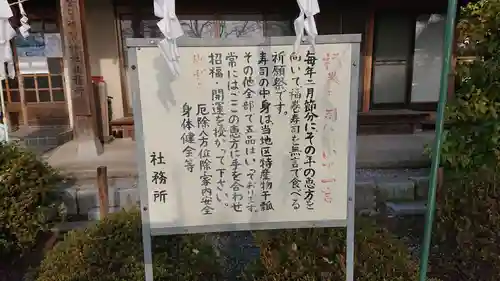 毎年二月節分にその年の恵方と
向いて福巻寿司を無言で食べる
祈願祭です。
寿司の中身は当地区特産物干瓢
その他全部で五品はいっております。
常にはここの恵方に手を合わせ
招福・開運を授かって下さい。
厄除八方位除家内安全
身体健全等
社務所